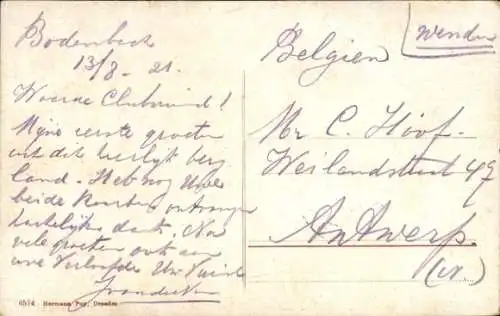 Bodenbach
13/8 - 21.
Waarde Clubvriend!
Mijne eerste groeten
uit dit heerlijk berg
land. Heb nog Uwe
beide kaarten ontvangen
hartelijke dank. Nu
vele groeten ook aan
uwe Verloofde Uw Vriend
Belgien
wenden
Mr C. Hoof
Weilandstraat 49
Antwerp.
6574 Hermann Poy, Dresden